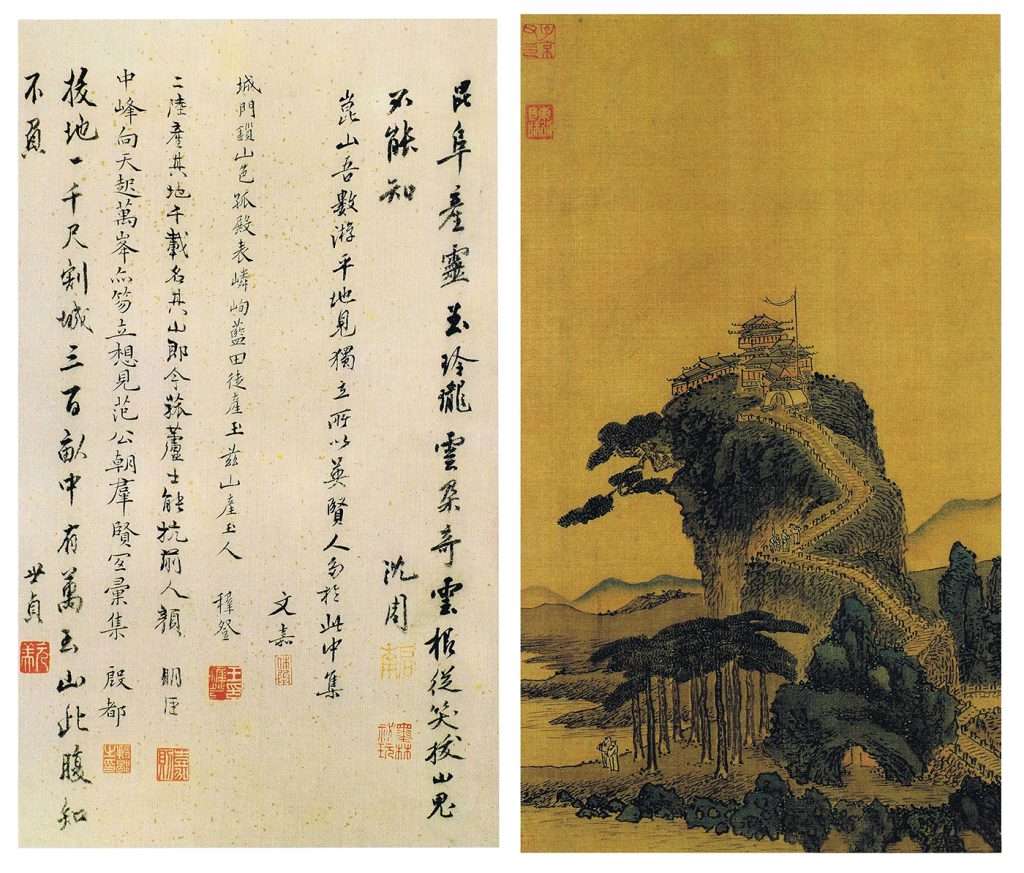 昆阜產靈玉玲瓏雲朵奇雲根從笑拔山鬼
不能知 沈周
崑山吾數游平地見獨立所以英賢人多於此中集
文嘉
城門鎖山色孤殿表嶙峋藍田徒產玉茲山產玉人 穉登
二陸產其地千載名其山即今菰蘆士能抗前人顏 明臣
嘉則
中峰向天起萬峯亦笏立想見范公朝羣賢彙集 殷都
拔地一千尺割城三百畝中有萬玉山此腹知
不負 世貞
元美